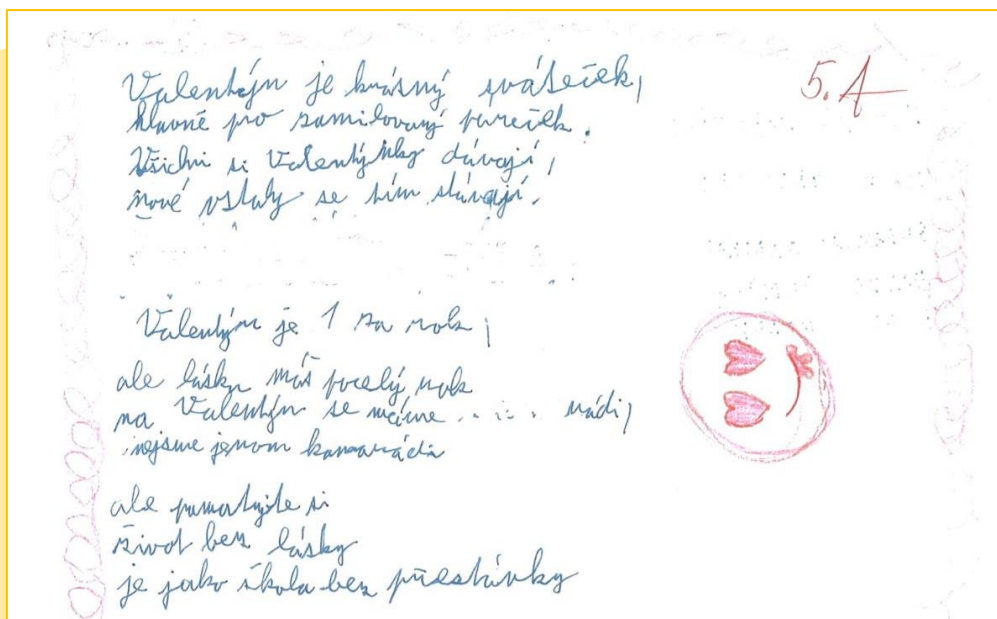 Valentýn je krásný sváteček,
hlavně pro zamilovaný pareček.
Všichni si Valentýnky dávají,
nové vztahy se tím stávají.
5.A
Valentýn je 1 za rok,
ale lásky máš pocelý rok
na Valentýn se máme rádi,
nejsme jenom kamarádi
ale pamatujte si
život bez lásky
je jako škola bez přestávky